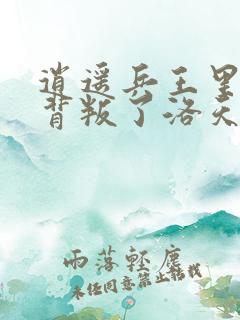 逍遥兵王里
背叛了洛天
雨落轻尘
未经同意禁止转载